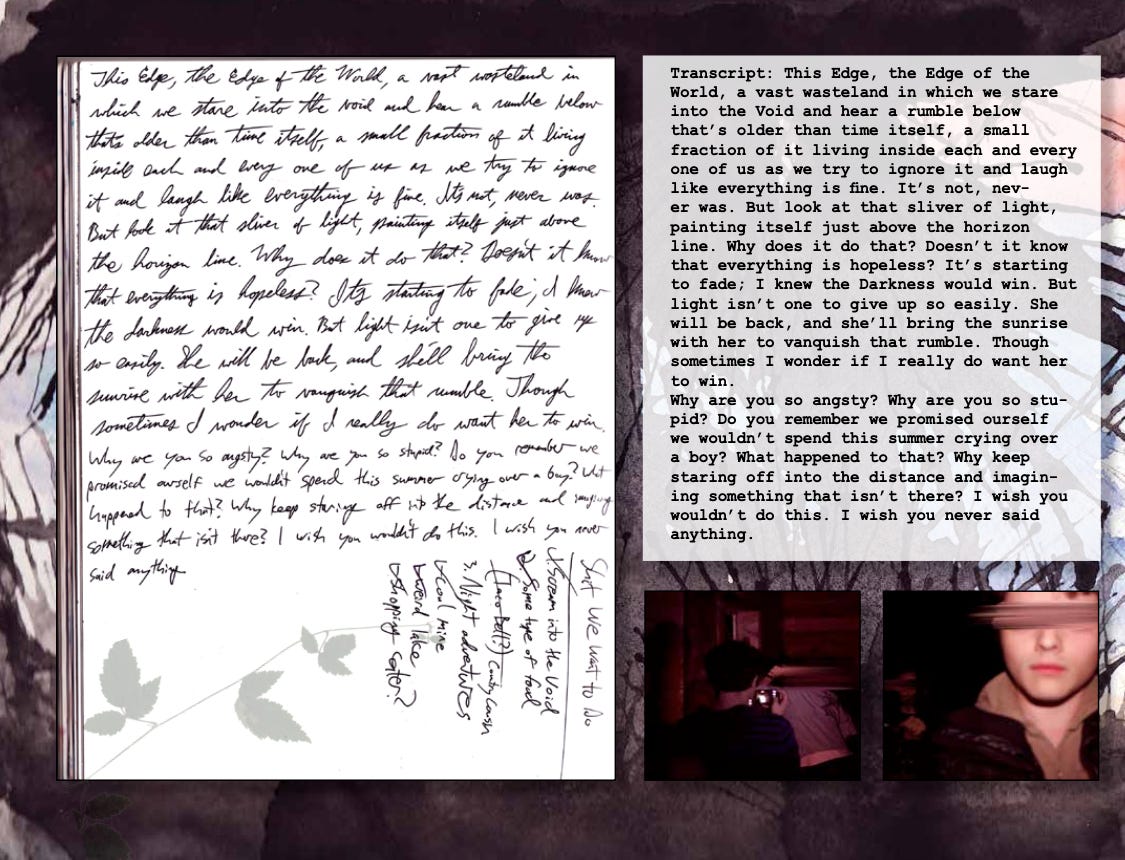 This Edge, the Edge of the World, a vast wasteland in
which we stare into the void and hear a rumble below
thats older than time itself, a small fraction of it living
inside each and every one of us as we try to ignore
it and laugh like everything is fine. Its not, never was.
But look at that sliver of light, painting itself just above
the horizon line. Why does it do that? Doesn't it know
that everything is hopeless? Its starting to fade; I knew
the darkness would win. But light isnt one to give up
so easily. She will be back, and she'll bring the
sunrise with her to vanquish that rumble. Though
sometimes I wonder if I really do want her to win.
Why are you so angsty? Why are you so stupid? Do you remember we
promised ourself we wouldn't spend this summer crying over a boy? What
happened to that? Why keep staring off into the distance and imagining
something that isn't there? I wish you wouldn't do this. I wish you never
said anything
Shit We Want to Do
1. Scream into the Void
2. Some type of food
(Taco Bell?)
3. Night adventures
coal mine
weird lake
shopping center?
Transcript: This Edge, the Edge of the
World, a vast wasteland in which we stare
into the Void and hear a rumble below
that's older than time itself, a small
fraction of it living inside each and every
one of us as we try to ignore it and laugh
like everything is fine. It's not, nev-
er was. But look at that sliver of light,
painting itself just above the horizon
line. Why does it do that? Doesn't it know
that everything is hopeless? It's starting
to fade; I knew the Darkness would win. But
light isn't one to give up so easily. She
will be back, and she'll bring the sunrise
with her to vanquish that rumble. Though
sometimes I wonder if I really do want her
to win.
Why are you so angsty? Why are you so stu-
pid? Do you remember we promised ourself
we wouldn't spend this summer crying over
a boy? What happened to that? Why keep
staring off into the distance and imagin-
ing something that isn't there? I wish you
wouldn't do this. I wish you never said
anything.